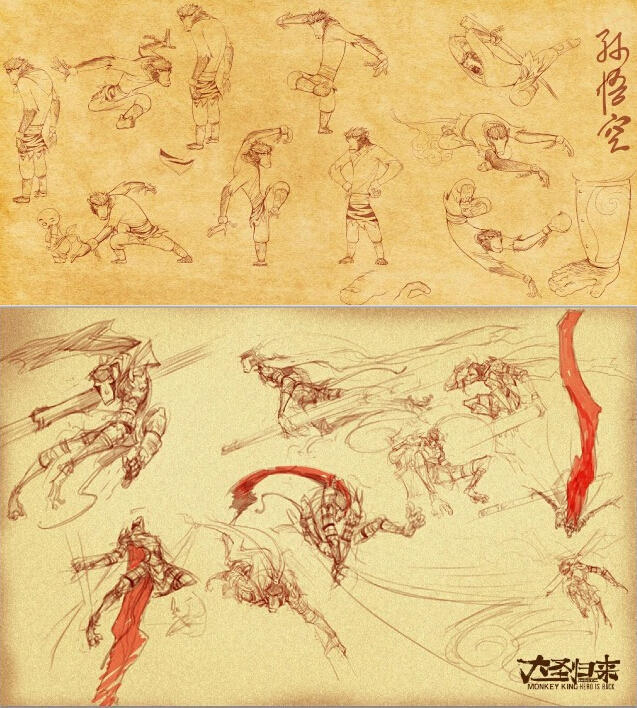 孙悟空
大圣归来
MONKEY KING HERO IS BACK